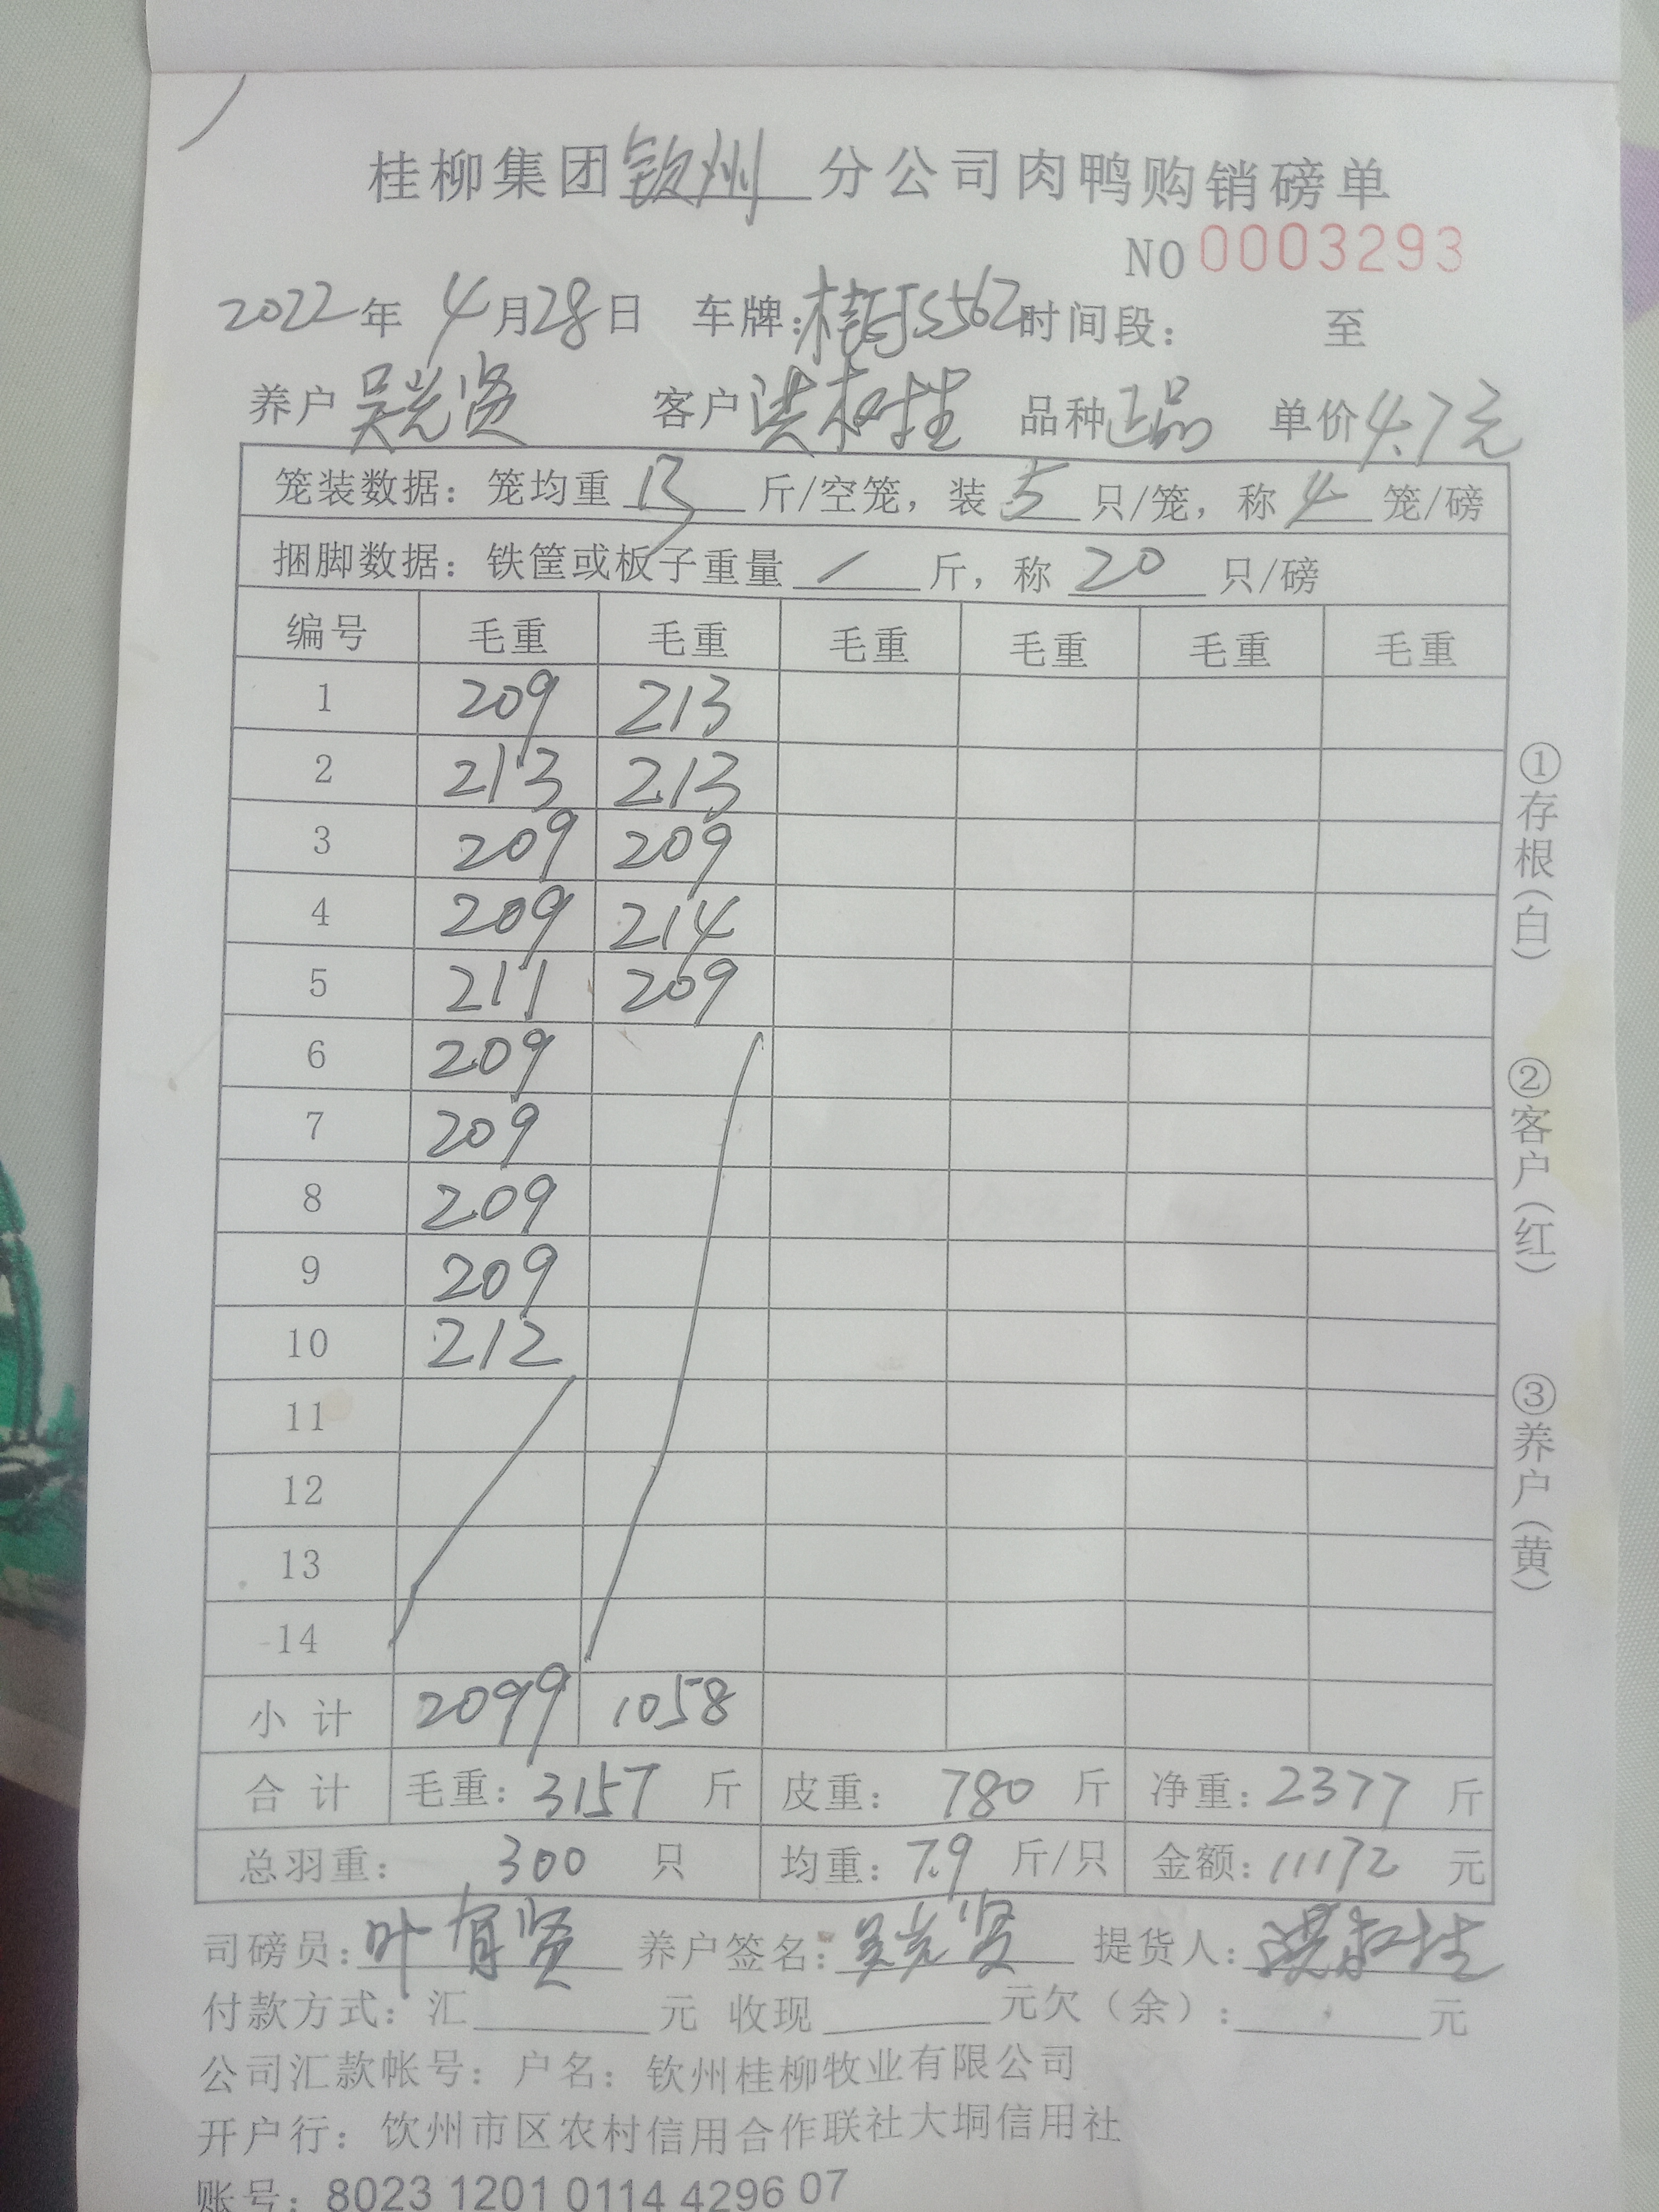 桂柳集团钦州分公司肉鸭购销磅单
NO 0003293
2022年 4月28日 车牌:桂EJS562 时间段: 至
养户 吴光贤 客户 洪树生 品种 正品 单价 4.7元
笼装数据: 笼均重 13 斤/空笼, 装 5 只/笼, 称 4 笼/磅
捆脚数据: 铁筐或板子重量 / 斤, 称 20 只/磅
编号 毛重 毛重 毛重 毛重 毛重 毛重
1 209 213
2 213 213
3 209 209
4 209 214
5 211 209
6 209
7 209
8 209
9 209
10 212
11
12
13
14
小 计 2099 1058
合 计 毛重: 3157 斤 皮重: 780 斤 净重: 2377 斤
总羽重: 300 只 均重: 7.9 斤/只 金额: 11172 元
司磅员: 叶有贤 养户签名: 吴光贤 提货人:
付款方式: 汇 元 收现 元欠(余): 元
公司汇款帐号: 户名: 钦州桂柳牧业有限公司
开户行: 钦州市区农村信用合作联社大垌信用社
账号: 8023 1201 0114 4296 07
①存根(白) ②客户(红) ③养户(黄)